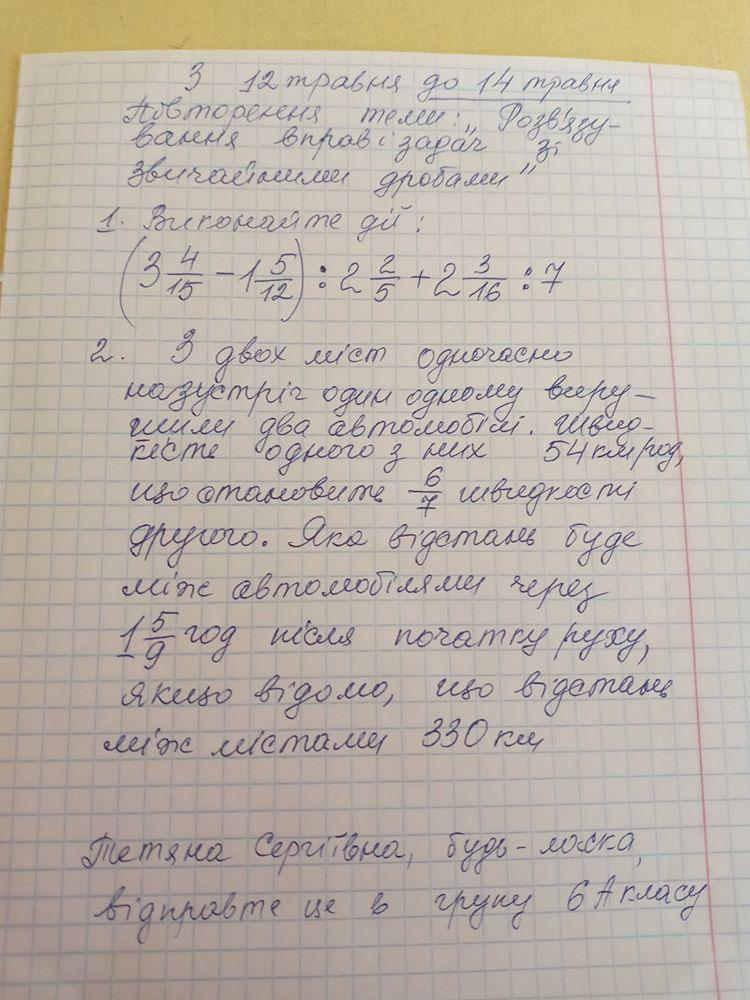 З 12 травня до 14 травня
Повторення теми: „Розв'язу-
вання вправ і задач зі
звичайними дробами"
1. Виконайте дії:
(3 4/15 - 1 5/12) : 2 2/5 + 2 3/16 : 7
2. З двох міст одночасно
назустріч один одному виру-
шили два автомобілі. Швид-
кість одного з них 54 км/год,
що становить 6/7 швидкості
другого. Яка відстань буде
між автомобілями через
1 5/9 год після початку руху,
якщо відомо, що відстань
між містами 330 км
Тетяна Сергіївна, будь-ласка,
відправте це в групу 6А класу